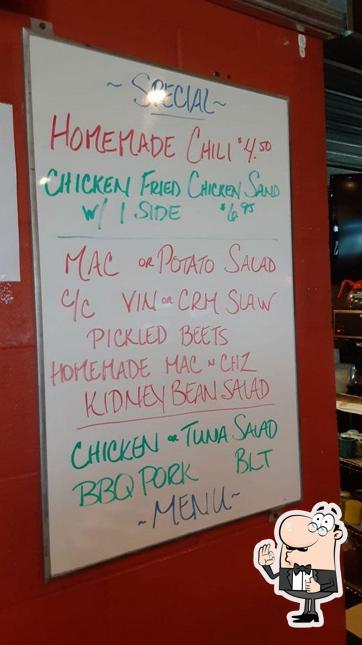 ~ SPECIAL ~
HOMEMADE CHILI $4.50
CHICKEN FRIED CHICKEN SAND
W/ 1 SIDE $6.95
MAC OR POTATO SALAD
C/C VIN OR CRM SLAW
PICKLED BEETS
HOMEMADE MAC N CHZ
KIDNEY BEAN SALAD
CHICKEN OR TUNA SALAD
BBQ PORK BLT
~ MENU ~